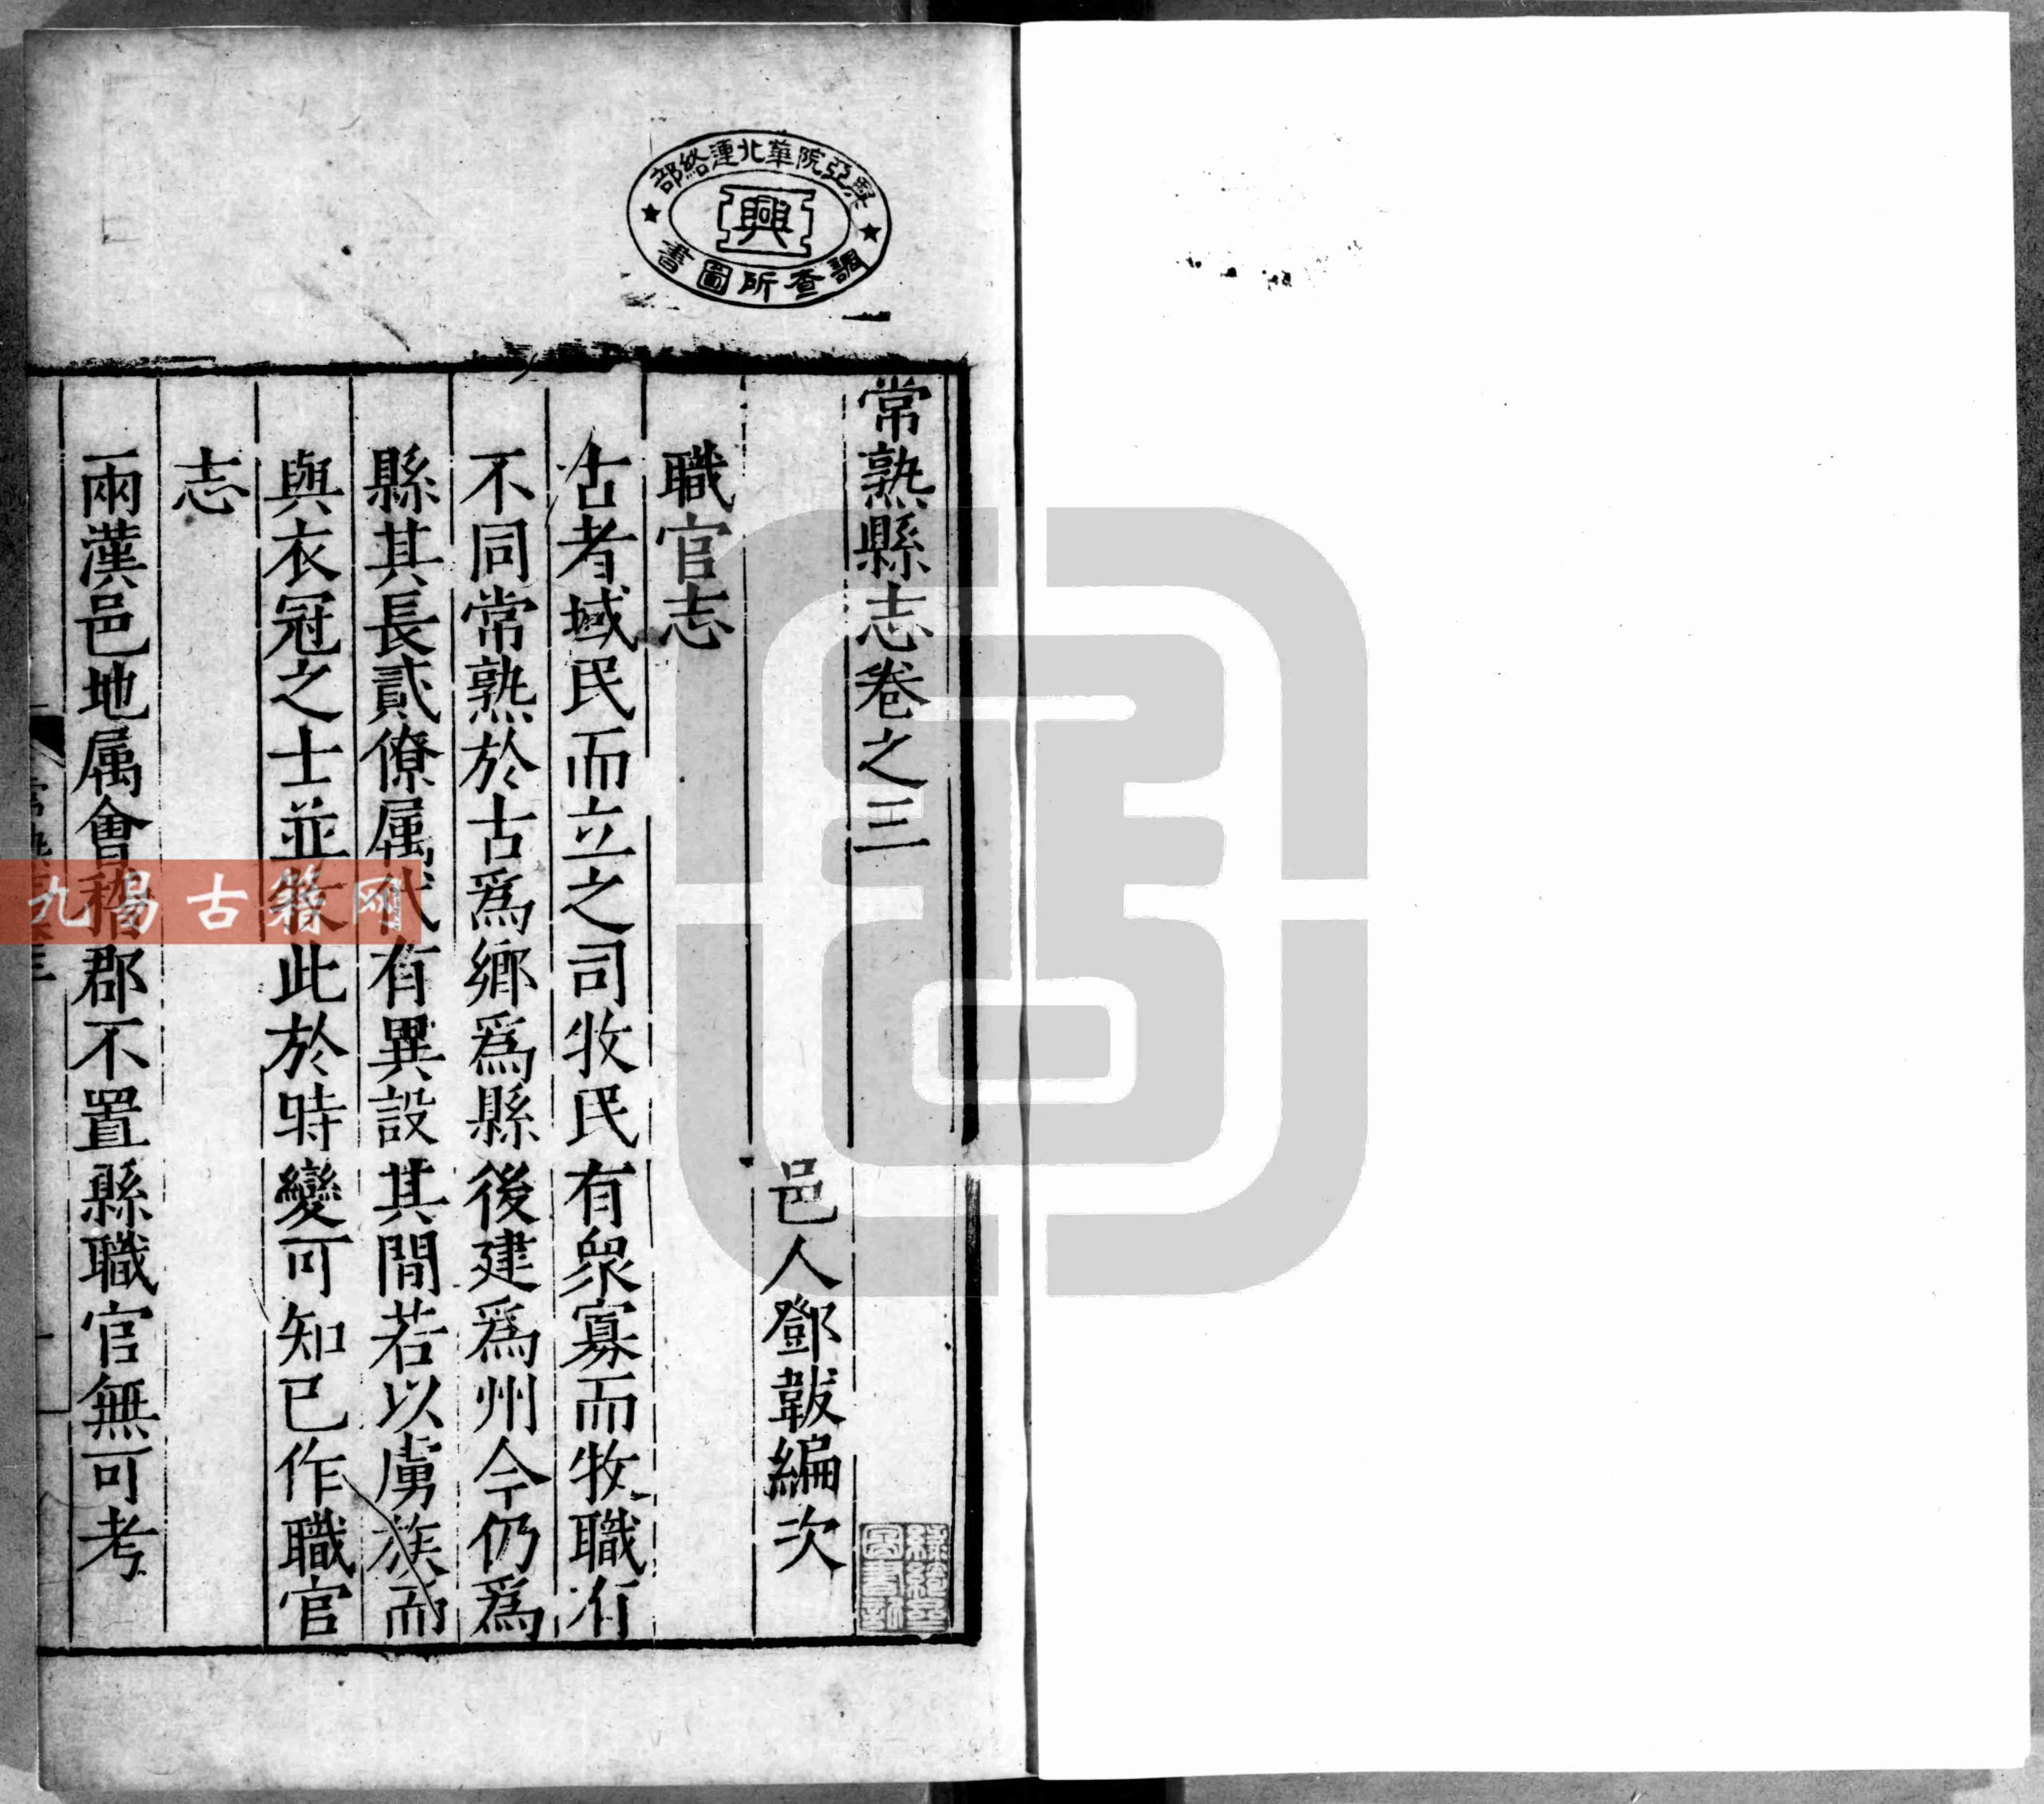 常熟縣志卷之三
邑人鄧韍編次
職官志
古者域民而立之司牧民有衆寡而牧職有
不同常熟於古爲鄉爲縣後建爲州今仍爲
縣其長貳僚属代有異設其間若以虜族而
與衣冠之士並牧此於時變可知已作職官
志
兩漢邑地属會稽郡不置縣職官無可考
興亞院華北連絡部
興
調查所圖書
九易古籍网